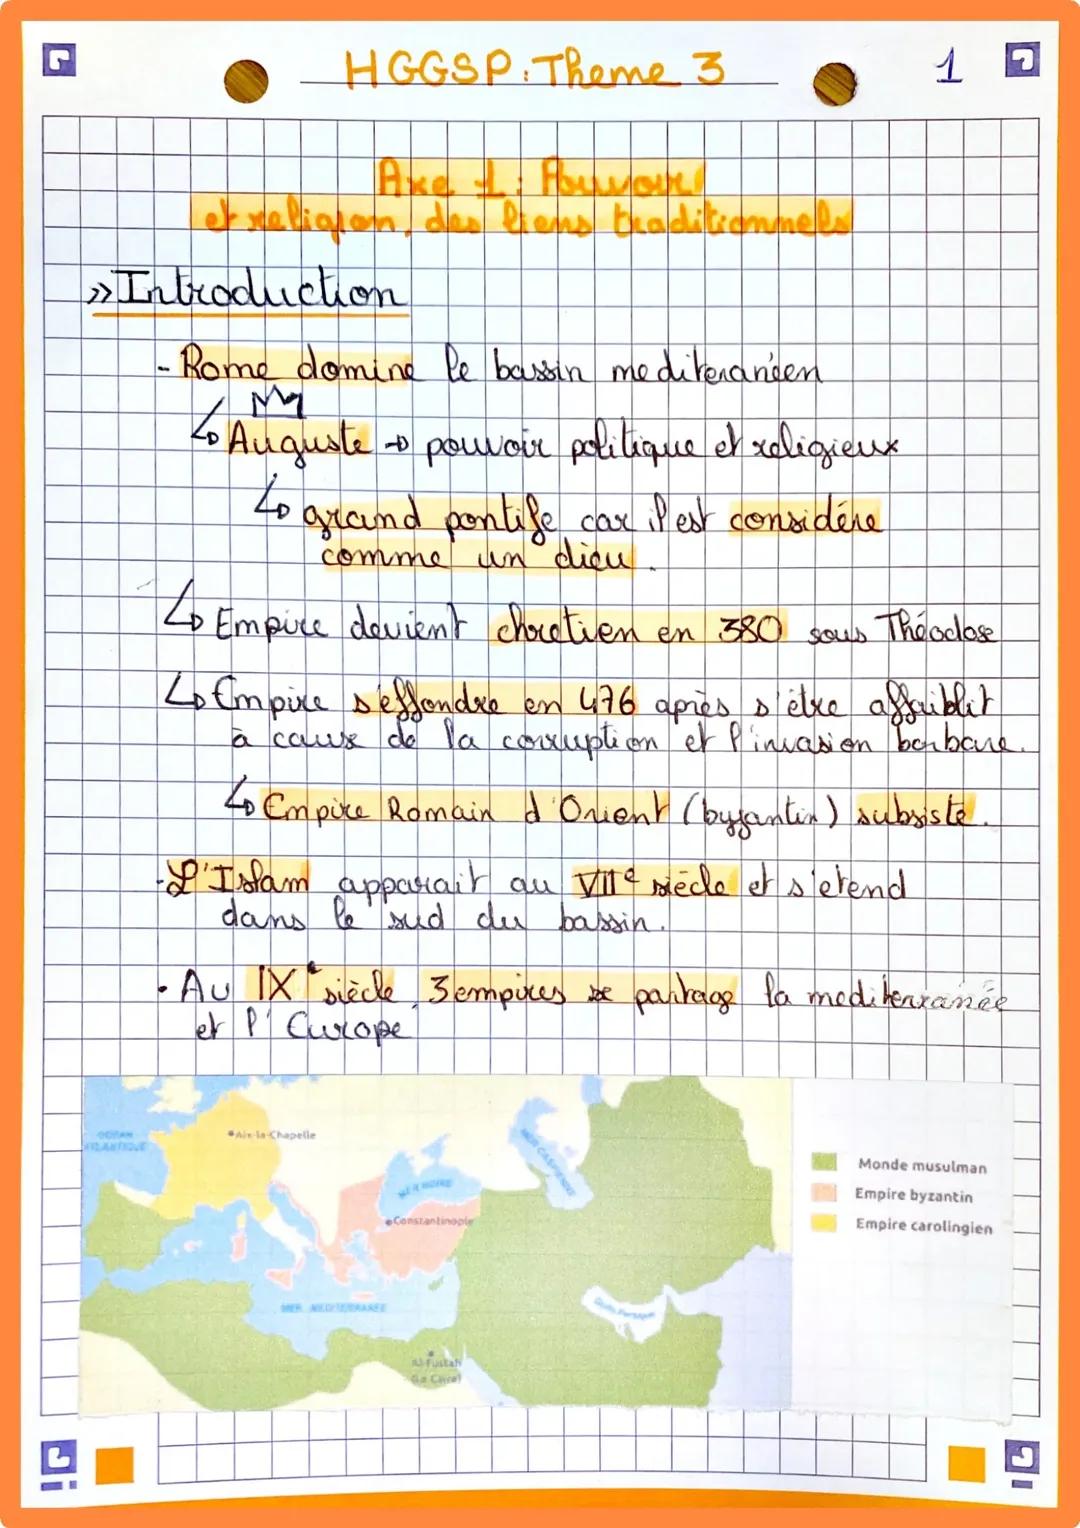 HGGSP : Theme 3
1
Axe 1 : Pouvoir
et religion, des liens traditionnels
» Introduction
- Rome domine le bassin mediteranéen
↳ Auguste → pouvoir politique et religieux
↳ grand pontife car il est considére
comme un dieu.
↳ Empire devient chretien en 380 sous Théodose
↳ Empire s'effondre en 476 après s'être affaiblit
à cause de la corruption et l'invasion barbare.
↳ Empire Romain d'Orient (byzantin) subsiste.
- L'Islam apparait au VIIe siècle et s'etend
dans le sud du bassin.
• Au IXe siècle, 3 empires se partage la mediterranée
et l'Europe
OCÉAN
ATLANTIQUE
Aix-la-Chapelle
MER NOIRE
MER CASPIENNE
Constantinople
MER MÉDITERRANÉE
Golfe Persique
Al-Fustat
(Le Caire)
Monde musulman
Empire byzantin
Empire carolingien